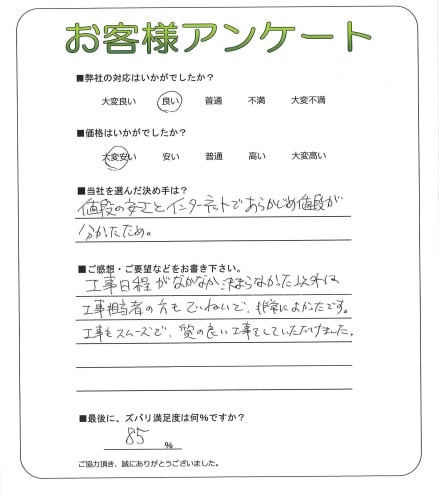 お客様アンケート
■弊社の対応はいかがでしたか？
大変良い 良い 普通 不満 大変不満
■価格はいかがでしたか？
大変安い 安い 普通 高い 大変高い
■当社を選んだ決め手は？
値段の安さとインターネットであらかじめ値段が
分かったため。
■ご感想・ご要望などをお書き下さい。
工事日程がなかなか決まらなかった以外は
工事担当者の方もていねいで、非常によかったです。
工事もスムーズで、質の良い工事をしていただけました。
■最後に、ズバリ満足度は何％ですか？
85 ％
ご協力頂き、誠にありがとうございました。